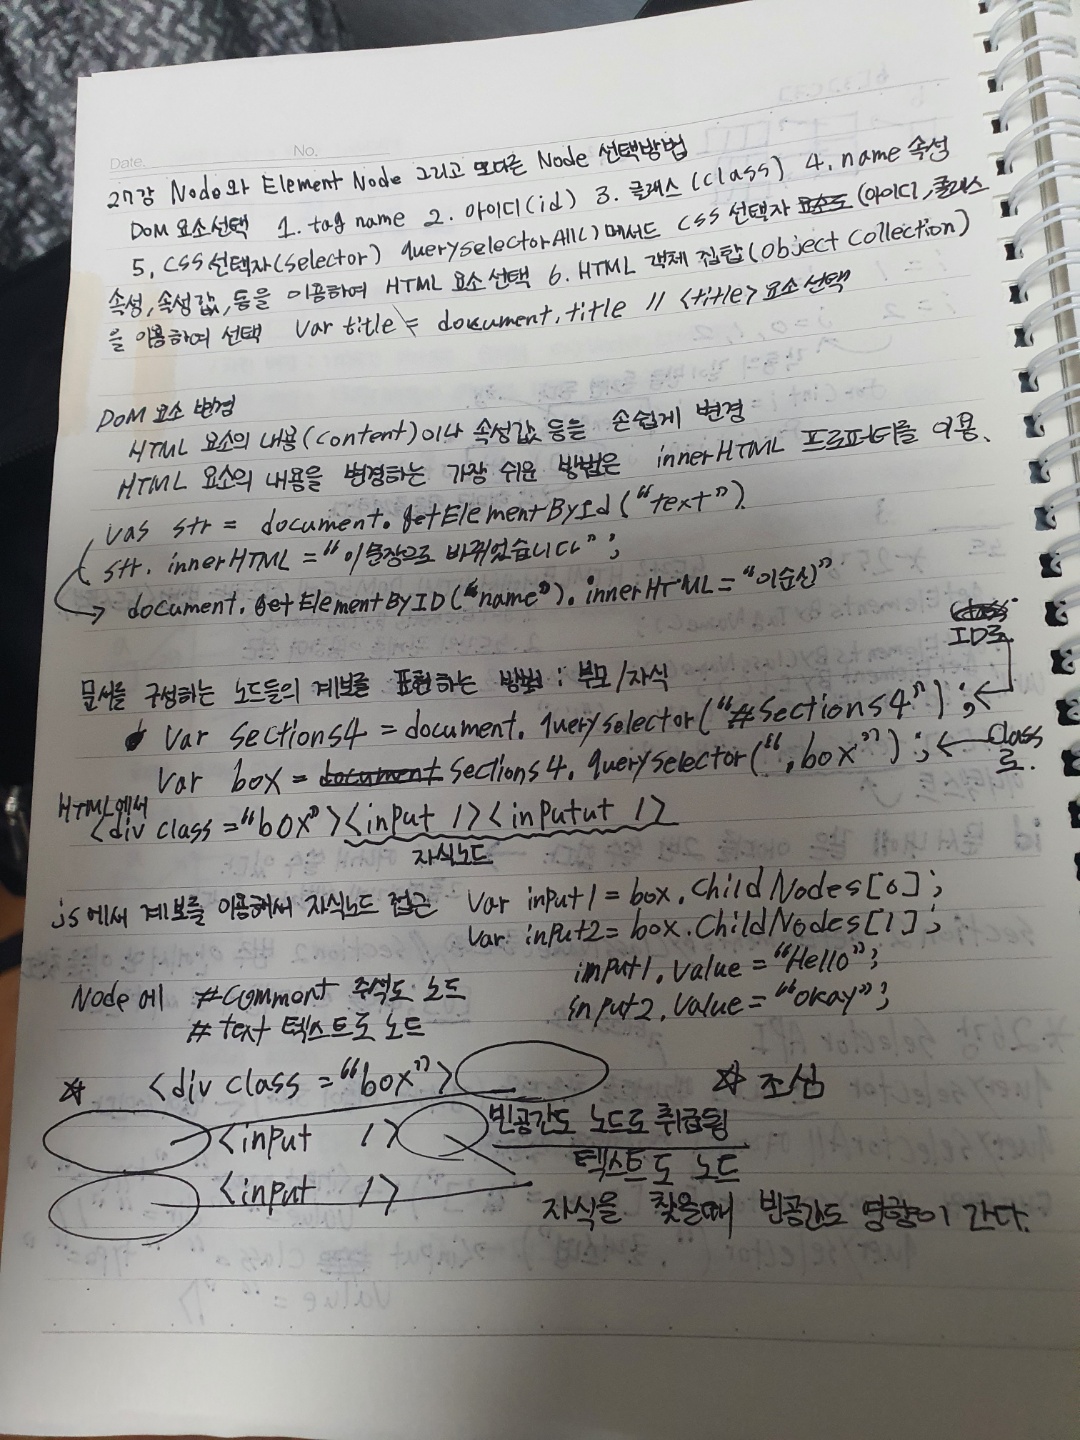 Date. No.
27강 Node와 Element Node 그리고 또다른 Node 선택방법
DOM 요소선택 1. tag name 2. 아이디(id) 3. 클래스(class) 4. name 속성
5. CSS 선택자(selector) querySelectorAll() 메서드 CSS 선택자 (아이디, 클래스
속성, 속성값, 등을 이용하여 HTML 요소 선택 6. HTML 객체 집합(Object Collection)
을 이용하여 선택 Var title = document.title // <title> 요소 선택
DOM 요소 변경
HTML 요소의 내용(content)이나 속성값 등을 손쉽게 변경
HTML 요소의 내용을 변경하는 가장 쉬운 방법은 innerHTML 프로퍼티를 이용.
vas str = document.getElementById("text")
str. innerHTML = "이문장으로 바뀌었습니다";
document.GetElementByID("name").innerHTML = "이순신"
ID로
문서를 구성하는 노드들의 계보를 표현하는 방법 : 부모/자식
Var sections4 = document. querySelector("#sections4");
Var box = document sections4. querySelector(".box"); class로.
HTML에서
<div class="box"><input /><inputut />
자식노드
js에서 계보를 이용해서 자식노드 접근 Var input1 = box.ChildNodes[0];
Var input2 = box.ChildNodes[1];
input1.Value = "Hello";
input2.Value = "okay";
Node에 #comment 주석도 노드
# text 텍스트도 노드
☆ <div class="box"> ☆ 조심
<input /> 빈공간도 노드로 취급됨
텍스트도 노드
<input />
자식을 찾을때 빈공간도 영향이 간다.